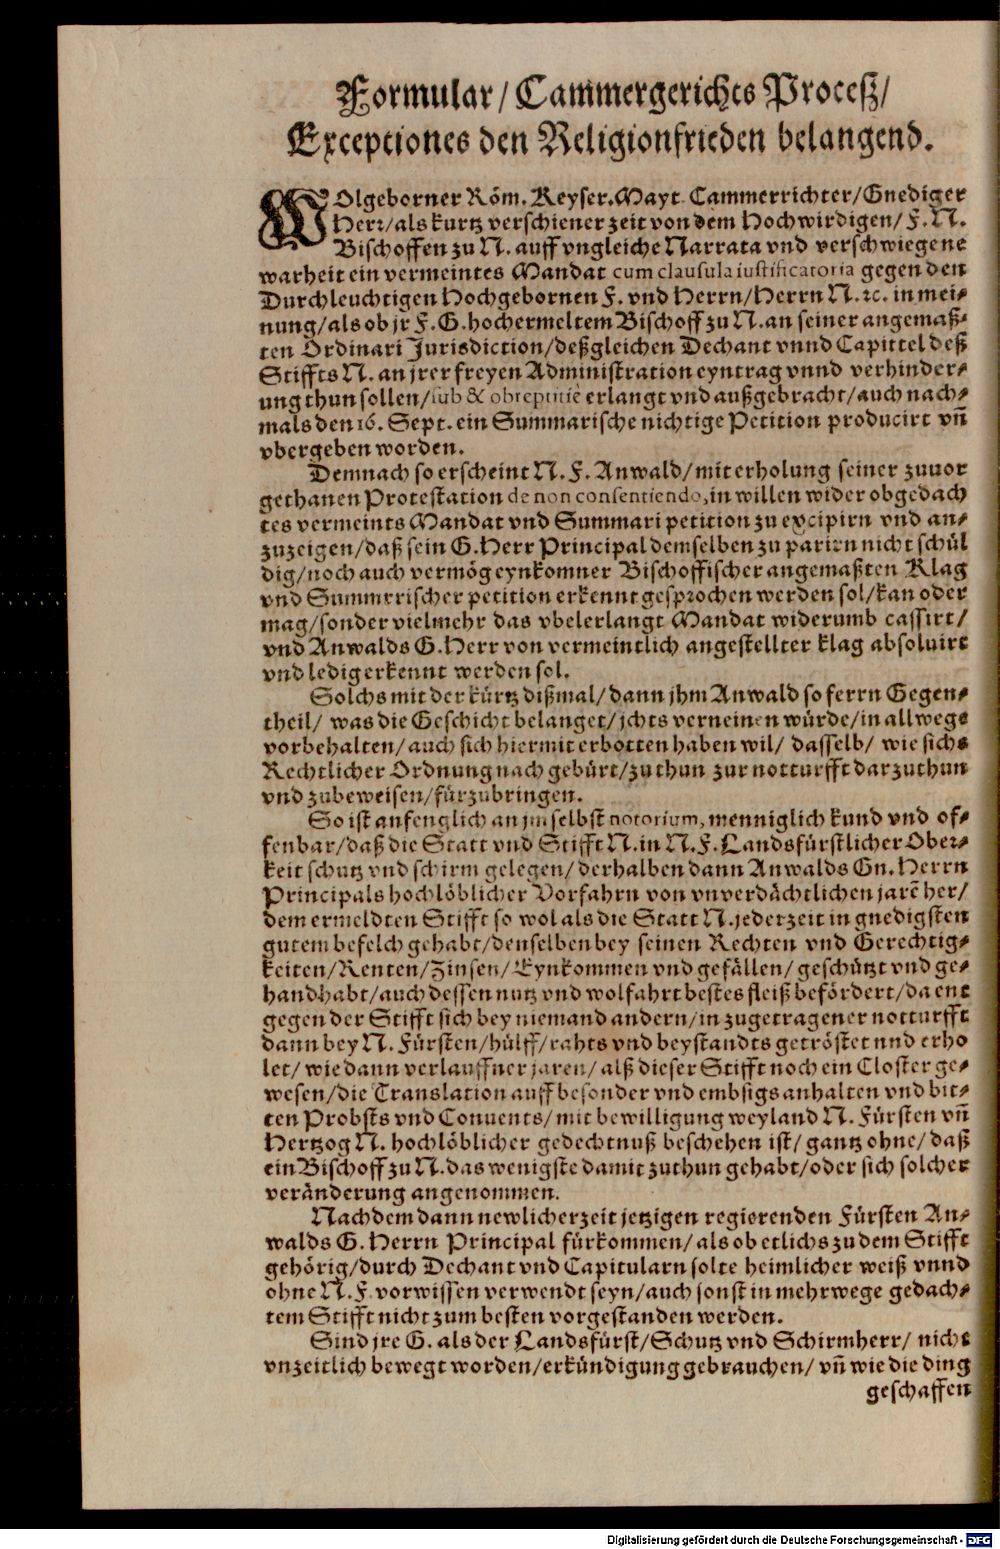 Formular/ Cammergerichts Proceß/
Exceptiones den Religionfrieden belangend.
WOlgeborner Röm. Keyser. Mayt. Cammerrichter/ Gnediger
Herr/ als kurtz verschiener zeit von dem Hochwirdigen/ F. N.
Bischoffen zu N. auff vngleiche Narrata vnd verschwiegene
warheit ein vermeintes Mandat cum clausula iustificatoria gegen den
Durchleuchtigen Hochgebornen F. vnd Herrn/ Herrn N. ꝛc. in mei⸗
nung/ als ob jr F. G. hochermeltem Bischoff zu N. an seiner angemaß⸗
ten Ordinari Jurisdiction/ deßgleichen Dechant vnnd Capittel deß
Stiffts N. an jrer freyen Administration eyntrag vnnd verhinder⸗
ung thun sollen/ sub & obreptitiè erlangt vnd außgebracht/ auch nach⸗
mals den 16. Sept. ein Summarische nichtige Petition producirt vñ
vbergeben worden.
Demnach so erscheint N. F. Anwald/ mit erholung seiner zuuor
gethanen Protestation de non consentiendo, in willen wider obgedach
tes vermeints Mandat vnd Summari petition zu excipirn vnd an⸗
zuzeigen/ daß sein G. Herr Principal demselben zu parirn nicht schül
dig/ noch auch vermög eynkomner Bischoffischer angemaßten Klag
vnd Summrrischer petition erkennt gesprochen werden sol/ kan oder
mag/ sonder vielmehr das vbelerlangt Mandat widerumb cassirt/
vnd Anwalds G. Herr von vermeintlich angestellter klag absoluirt
vnd ledig erkennt werden sol.
Solchs mit der kürtz dißmal/ dann jhm Anwald so ferrn Gegen⸗
theil/ was die Geschicht belanget/ jchts verneinen würde/ in allwege
vorbehalten/ auch sich hiermit erbotten haben wil/ dasselb/ wie sichs
Rechtlicher Ordnung nach gebürt/ zu thun zur notturfft darzuthun
vnd zubeweisen/ fürzubringen.
So ist anfenglich an jm selbst notorium, menniglich kund vnd of⸗
fenbar/ daß die Statt vnd Stifft N. in N. F. Landsfürstlicher Ober⸗
keit schutz vnd schirm gelegen/ derhalben dann Anwalds Gn. Herrn
Principals hochlöblicher Vorfahrn von vnverdächtlichen jarẽ her/
dem ermeldten Stifft so wol als die Statt N. jederzeit in gnedigsten
gutem befelch gehabt/ denselben bey seinen Rechten vnd Gerechtig⸗
keiten/ Renten/ Zinsen/ Eynkommen vnd gefällen/ geschützt vnd ge⸗
handhabt/ auch dessen nutz vnd wolfahrt bestes fleiß befördert/ da ent
gegen der Stifft sich bey niemand andern/ in zugetragener notturfft
dann bey N. Fürsten/ hülff/ rahts vnd beystandts getröstet nnd erho
let/ wie dann verlauffner jaren/ alß dieser Stifft noch ein Closter ge⸗
wesen/ die Translation auff besonder vnd embsigs anhalten vnd bit⸗
ten Probsts vnd Conuents/ mit bewilligung weyland N. Fürsten vñ
Hertzog N. hochlöblicher gedechtnuß beschehen ist/ gantz ohne/ daß
ein Bischoff zu N. das wenigste damit zuthun gehabt/ oder sich solcher
veränderung angenommen.
Nachdem dann newlicher zeit jetzigen regierenden Fürsten An⸗
walds G. Herrn Principal fürkommen/ als ob etlichs zu dem Stifft
gehörig/ durch Dechant vnd Capitularn solte heimlicher weiß vnnd
ohne N. F. vorwissen verwendt seyn/ auch sonst in mehrwege gedach⸗
tem Stifft nicht zum besten vorgestanden werden.
Sind jre G. als der Landsfürst/ Schutz vnd Schirmherr/ nicht
vnzeitlich bewegt worden/ erkündigung gebrauchen/ vñ wie die ding
geschaffen
Digitalisierung gefördert durch die Deutsche Forschungsgemeinschaft - DFG